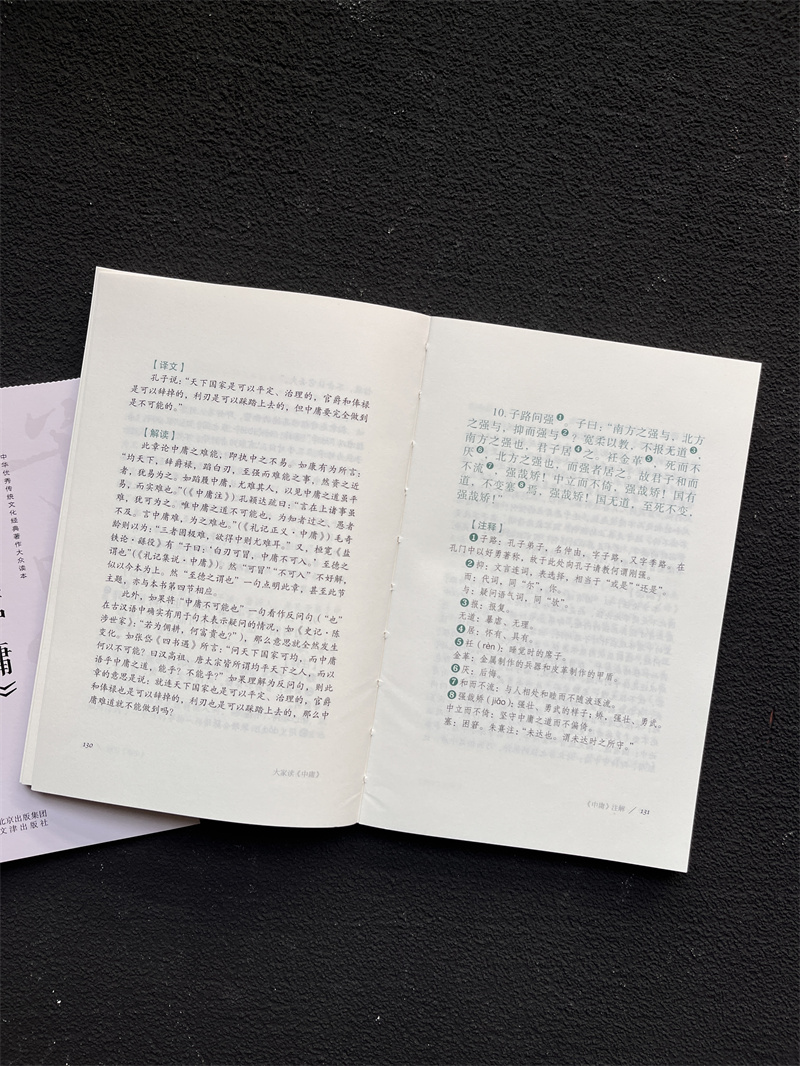 【译文】
孔子说：“天下国家是可以平定、治理的，官爵和俸禄
是可以辞掉的，利刃是可以踩踏上去的，但中庸要完全做到
是不可能的。”
【解读】
此章论中庸之难能，即执中之不易。如康有为所言：
“均天下，辞爵禄，蹈白刃，至强而难能之事，然资之近
者，犹易为之。如蹈履中庸，无难其人，以见中庸之道虽平
易，而实难也。”（《中庸注》）孔颖达疏曰：“言在上诸事虽
难，犹可为之。唯中庸之道不可能也，为知者过之，愚者
不及。言中庸难，为之难也。”（《礼记正义·中庸》）毛奇
龄则以为：“三者固极难，欲得中则尤难耳。”又，桓宽《盐
铁论·繇役》有“子曰：‘白刃可冒，中庸不可入。’至德之
谓也”（《礼记集说·中庸》）。然“可冒”“不可入”不好解，
似以今本为上。然“至德之谓也”一句点明此章，甚至此节
主题，亦与本书第四节相应。
此外，如果将“中庸不可能也”一句看作反问句（“也”
在古汉语中确实有用于句末表示疑问的情况，如《史记·陈
涉世家》：“若为佣耕，何富贵也？”），那么意思就全然发生
变化。如张岱《四书遇》所言：“问天下国家可均，而中庸
何以不可能？曰汉高祖、唐太宗皆所谓均平天下之人，而以
语乎中庸之道，能乎？不能乎？”如果理解为反问句，则此
章的意思是说：就连天下国家也是可以平定、治理的，官爵
和俸禄也是可以辞掉的，利刃也是可以踩踏上去的，那么中
庸难道就不能做到吗？
130
大家读《中庸》
10. 子路问强❶。子曰：“南方之强与，北方
之强与，抑而强与❷？宽柔以教，不报无道❸，
南方之强也，君子居❹之。衽金革❺，死而不
厌❻，北方之强也，而强者居之。故君子和而
不流❼，强哉矫！中立而不倚，强哉矫！国有
道，不变塞❽焉，强哉矫！国无道，至死不变，
强哉矫！
【注释】
❶子路：孔子弟子，名仲由，字子路，又字季路。在
孔门中以好勇著称，故于此处向孔子请教何谓刚强。
❷抑：文言连词，表选择，相当于“或是”“还是”。
而：代词，同“尔”，你。
与：疑问语气词，同“欤”。
❸报：报复。
无道：暴虐、无理。
❹居：怀有、具有。
❺衽（rèn）：睡觉时的席子。
金革：金属制作的兵器和皮革制作的甲盾。
❻厌：后悔。
❼和而不流：与人相处和睦而不随波逐流。
❽强哉矫（jiǎo）：强壮、勇武的样子；矫，强壮、勇武。
中立而不倚：坚守中庸之道而不偏倚。
塞：困窘。朱熹注：“未达也。谓未达时之所守。”
《中庸》注解 / 131
中华优秀传统文化经典著作大众读本
庸》
北京出版集团
文津出版社